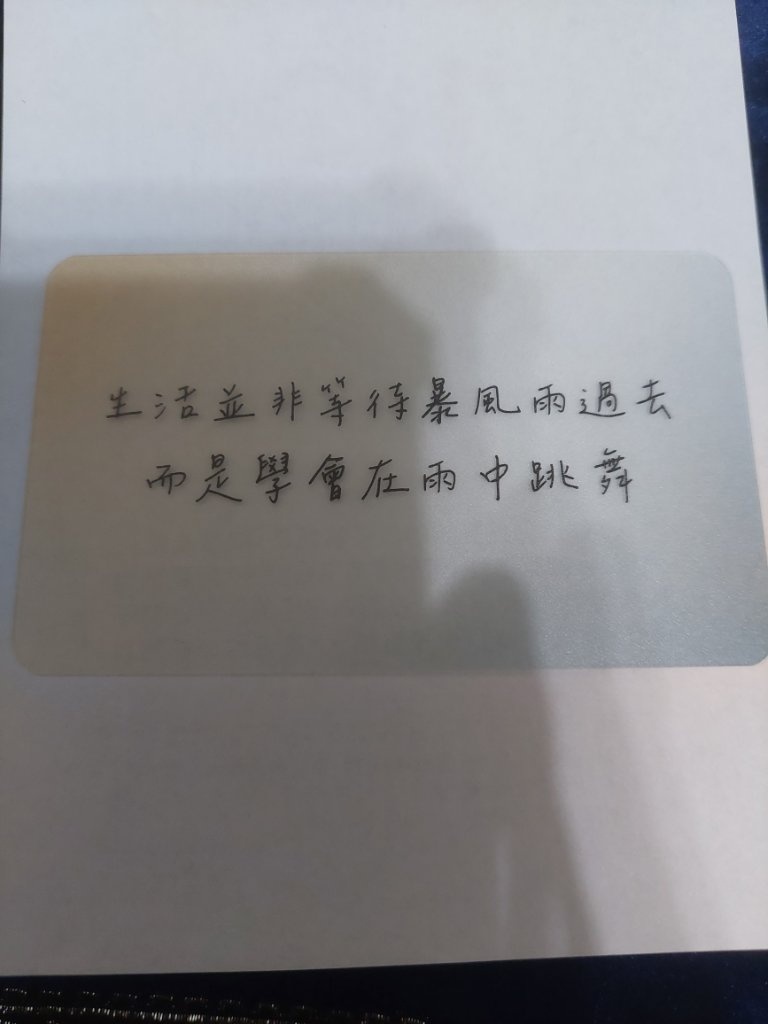 生活並非等待暴風雨過去
而是學會在雨中跳舞